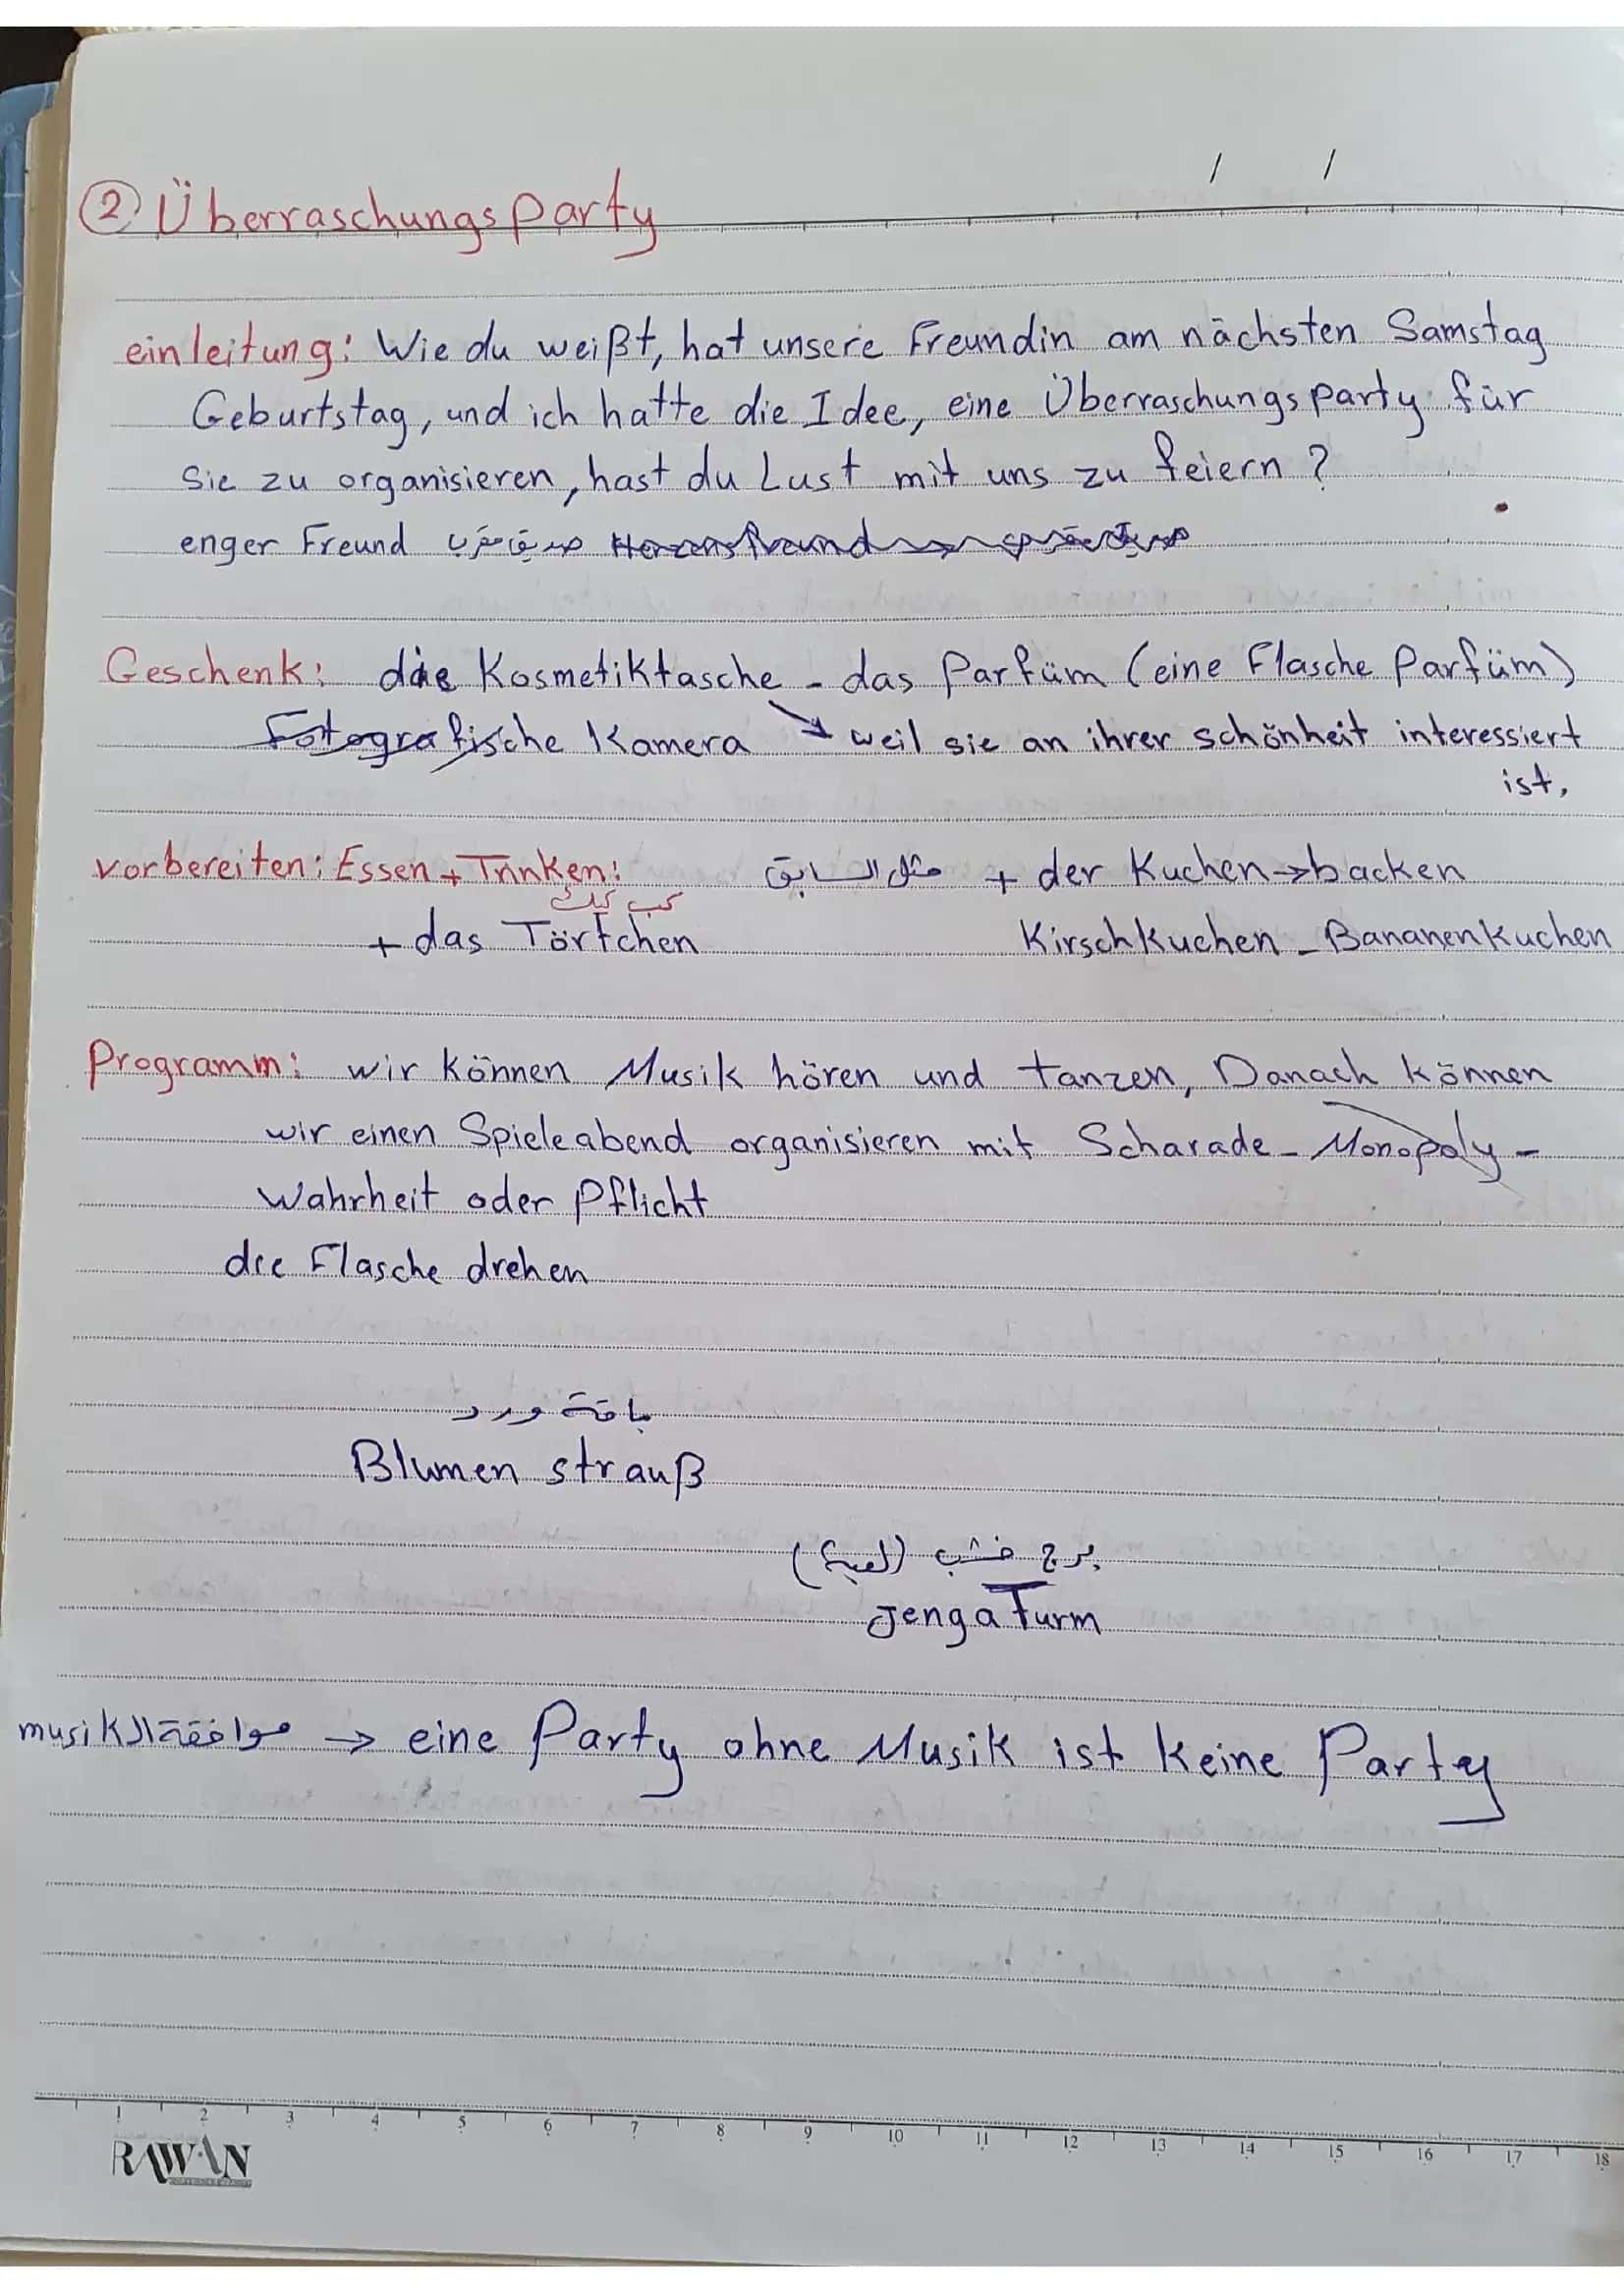 / /
② Überraschungsparty
einleitung: Wie du weißt, hat unsere Freundin am nächsten Samstag
Geburtstag, und ich hatte die Idee, eine Überraschungsparty für
Sie zu organisieren, hast du Lust mit uns zu feiern?
enger Freund صديق مقرب
Geschenk: die Kosmetiktasche - das Parfüm (eine Flasche Parfüm)
Fotografische Kamera ↘ weil sie an ihrer schönheit interessiert
ist.
vorbereiten: Essen + Trinken: مثل السابق + der Kuchen → backen
كب كيك
+ das Törtchen Kirschkuchen - Bananenkuchen
Programm: wir können Musik hören und tanzen, Danach können
wir einen Spieleabend organisieren mit Scharade - Monopoly -
Wahrheit oder Pflicht
die Flasche drehen
باقة ورد
Blumen strauß
برج خشب (لعبة)
Jenga Turm
موافقة الـ musik → eine Party ohne Musik ist keine Party
1 2 3 4 5 6 7 8 9 10 11 12 13 14 15 16 17 18
RAWAN